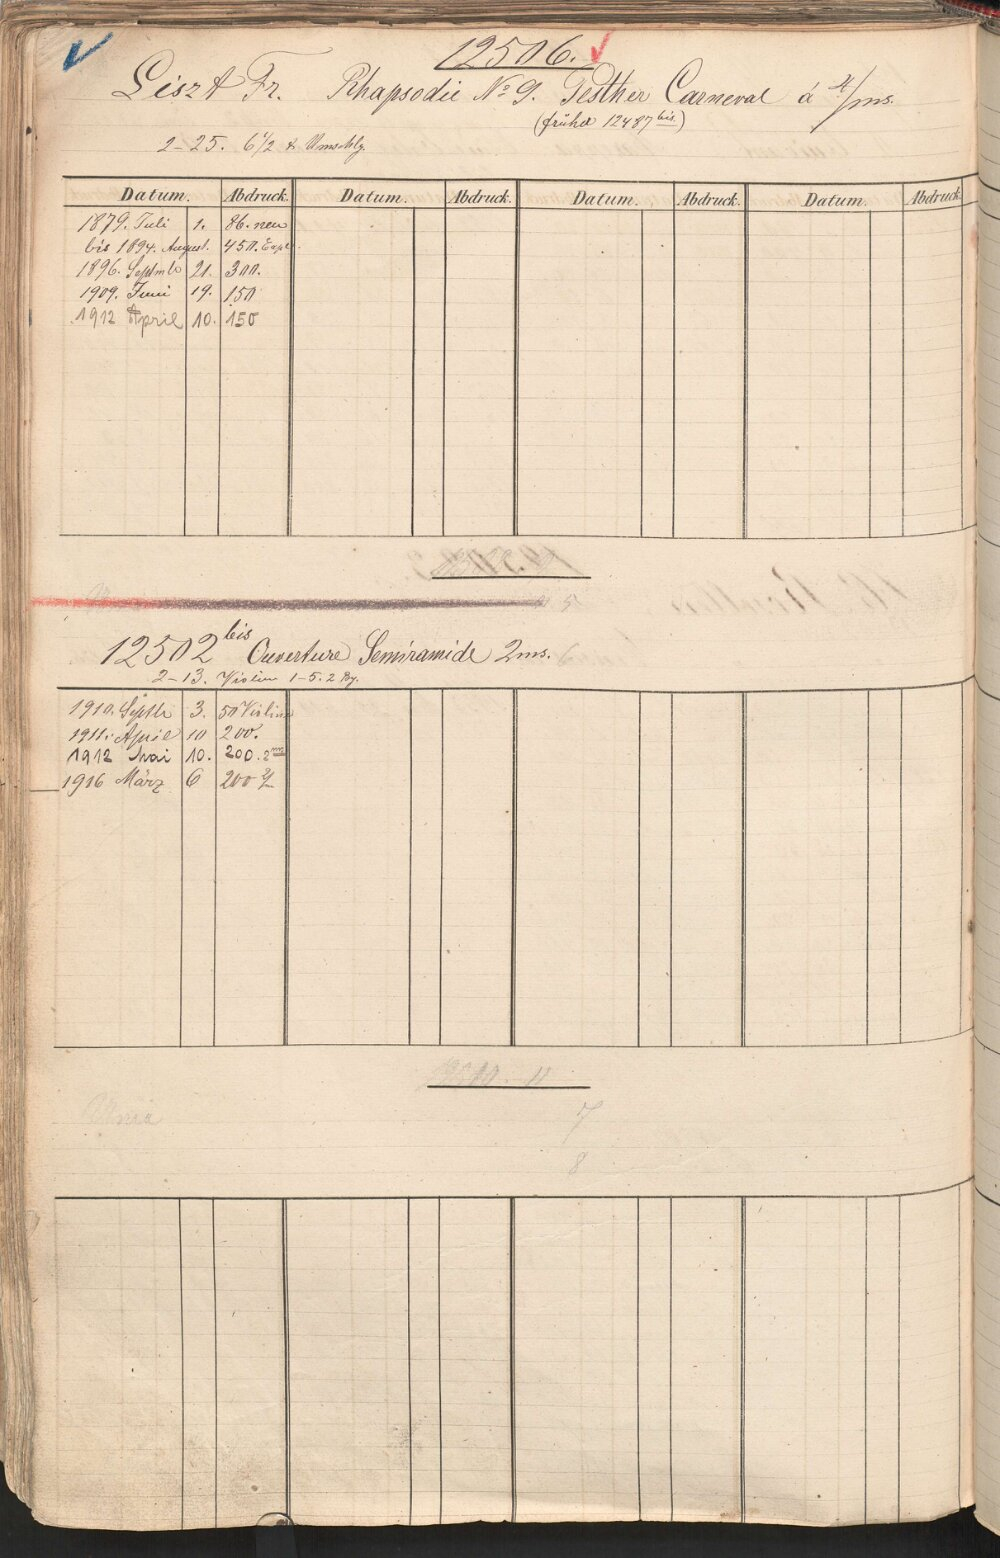 12506.
Liszt Fr. Rhapsodie No 9. Pesther Carneval à 4/ms.
(früher 12487 bis)
2-25. 6 1/2 & Umschlg.
Datum. Abdruck. Datum. Abdruck. Datum. Abdruck. Datum. Abdruck.
1879. Juli 1. 86. neu
bis 1894. August. 450. Expl.
1896. Septmb 21. 300.
1909. Juni 19. 150
1912 April 10. 150
12502 bis Ouverture Semiramide 2ms.
2-13. Violin 1-5. 2 Bg.
1910. Septb 3. 50 Violin
1911. April 10 200.
1912 Mai 10. 200. 2ms
1916 März 6 200 2/
7
8